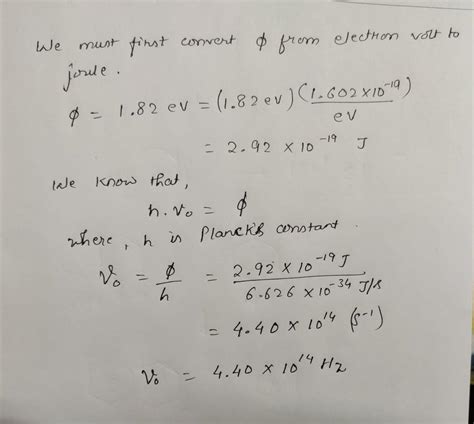 We must first convert ϕ from electron volt to
joule.
ϕ = 1.82 ev = (1.82 ev) (1.602×10⁻¹⁹)/ev
= 2.92 × 10⁻¹⁹ J
We know that,
h.ν₀ = ϕ
where, h is Planck's constant.
ν₀ = ϕ/h = 2.92 × 10⁻¹⁹ J / 6.626 × 10⁻³⁴ J/s
= 4.40 × 10¹⁴ (s⁻¹)
ν₀ = 4.40 × 10¹⁴ Hz